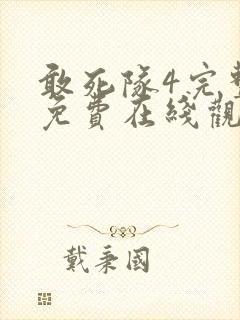 敢死隊4完整
免費在綫觀
戴秉國